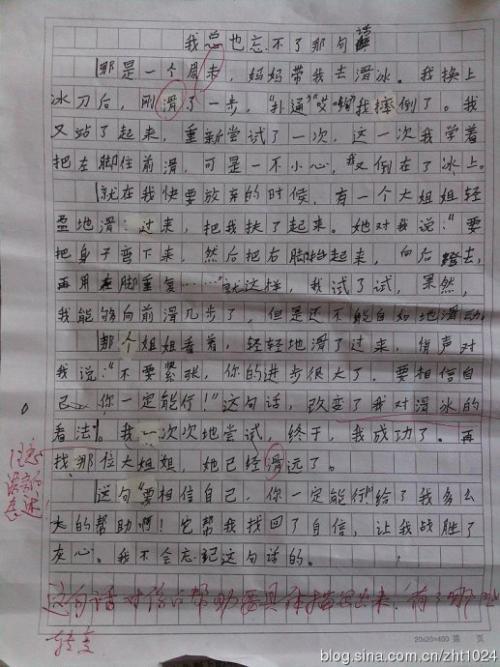 我总也忘不了那句话
那是一个周末，妈妈带我去滑冰。我换上
冰刀后，刚滑了一步，"扑通""哎哟"我摔倒了。我
又站了起来，重新尝试了一次，这一次我学着
把左脚往前滑，可是一不小心，我又倒在了冰上。
就在我快要放弃的时候，有一个大姐姐轻
盈地滑过来，把我扶了起来。她对我说："要
把身子弯下来，然后把右脚抬起来，向后蹬去，
再用左脚重复……"就这样，我试了试，果然，
我能够向前滑几步了，但是还不能自如地滑动。
那个姐姐看着，轻轻地滑了过来，俏声对
我说："不要紧张，你的进步很大了，要相信自
己，你一定能行！"这句话，改变了我对滑冰的
看法。我一次次地尝试，终于，我成功了。再
找那位大姐姐，她已经滑远了。
这句"要相信自己，你一定能行"给了我多么
大的帮助啊！它帮我找回了自信，让我战胜了
灰心。我不会忘记这句话的。
注意
语言的
表述
这句话对你的帮助要具体描写出来，有了哪些
转变
20×20=400 第 页
blog.sina.com.cn/zht1024